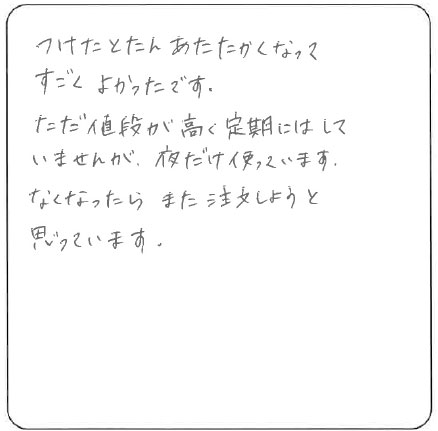 つけたとたん あたたかくなって
すごく よかったです。
ただ値段が高く定期にはして
いませんが、夜だけ使っています。
なくなったら また注文しようと
思っています。